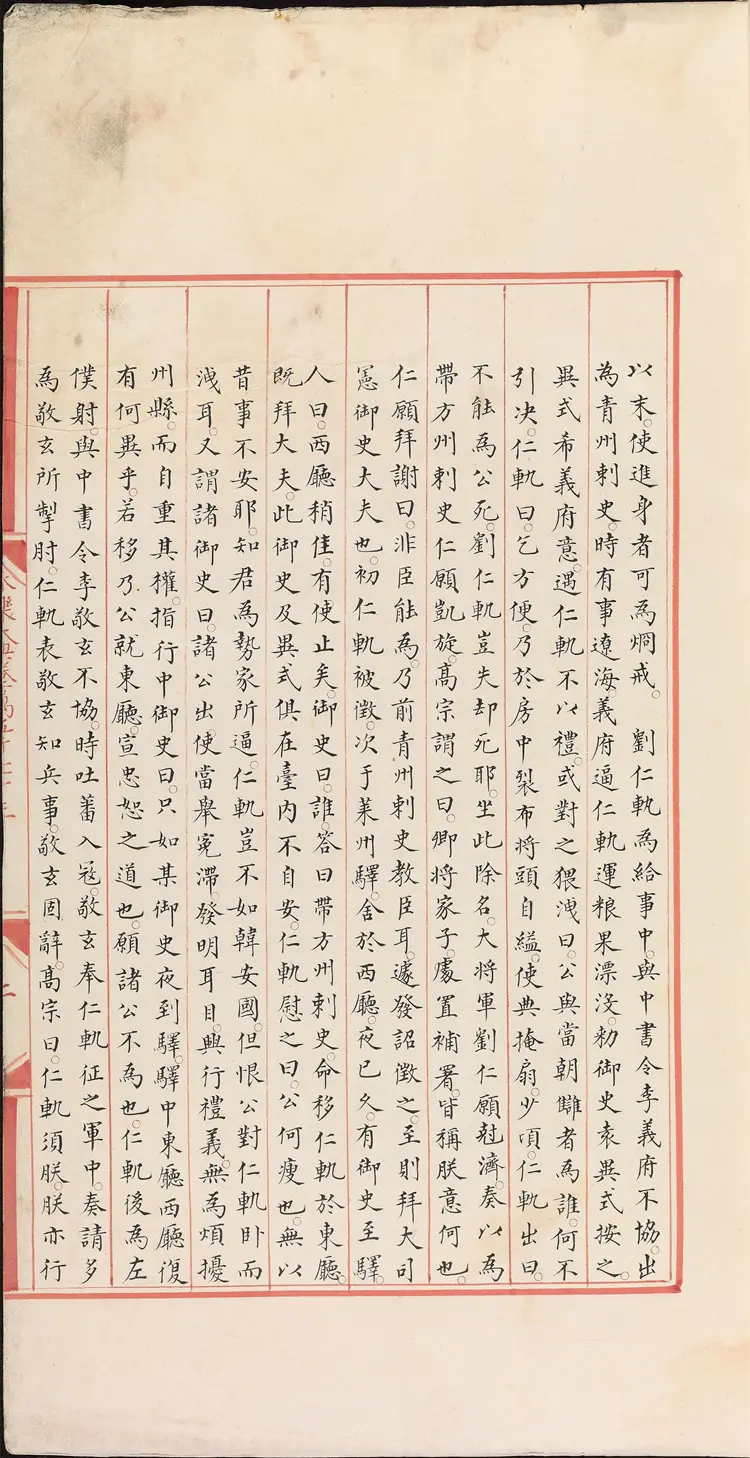 以末。使進身者可為烱戒。 劉仁軌為給事中。與中書令李義府不協。出
為青州刺史。時有事遼海。義府逼仁軌運粮果漂沒。勑御史袁異式按之。
異式希義府意。遇仁軌不以禮。或對之猥洩曰。公與當朝讎者為誰。何不
引决。仁軌曰。乞方便。乃於房中裂布將頭自縊。使典掩扇。少頃。仁軌出曰。
不能為公死。劉仁軌豈失却死耶。坐此除名。大將軍劉仁願尅濟。奏以為
帶方州刺史仁願凱旋。高宗謂之曰。卿將家子。處置補署。皆稱朕意何也。
仁願拜謝曰。非臣能為。乃前青州刺史教臣耳。遽發詔徵之。至則拜大司
憲御史大夫也。初仁軌被徵。次于萊州驛。舍於西廳。夜已久。有御史至驛。
人曰。西廳稍佳。有使止矣。御史曰。誰。答曰帶方州刺史。命移仁軌於東廳。
既拜大夫。此御史及異式俱在臺內不自安。仁軌慰之曰。公何瘦也。無以
昔事不安耶。知君為勢家所逼。仁軌豈不如韓安國。但恨公對仁軌卧而
洩耳。又謂諸御史曰。諸公出使當舉寃滯。發明耳目。興行禮義。無為煩擾
州縣。而自重其權。指行中御史曰。只如某御史夜到驛。驛中東廳西廳復
有何異乎。若移乃公就東廳。豈忠恕之道也。願諸公不為也。仁軌後為左
僕射。與中書令李敬玄不協。時吐蕃入寇。敬玄奉仁軌征之軍中。奏請多
為敬玄所掣肘。仁軌表敬玄知兵事。敬玄固辭。高宗曰。仁軌須朕。朕亦行